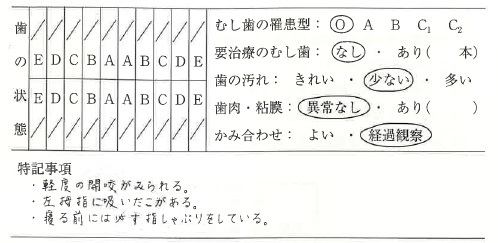 歯の状態
E D C B A A B C D E
E D C B A A B C D E
むし歯の罹患型： O A B C₁ C₂
要治療のむし歯： なし ・ あり（ 本）
歯の汚れ： きれい ・ 少ない ・ 多い
歯肉・粘膜： 異常なし ・ あり（ ）
かみ合わせ： よい ・ 経過観察
特記事項
・軽度の開咬がみられる。
・左拇指に吸いだこがある。
・寝る前には必ず指しゃぶりをしている。